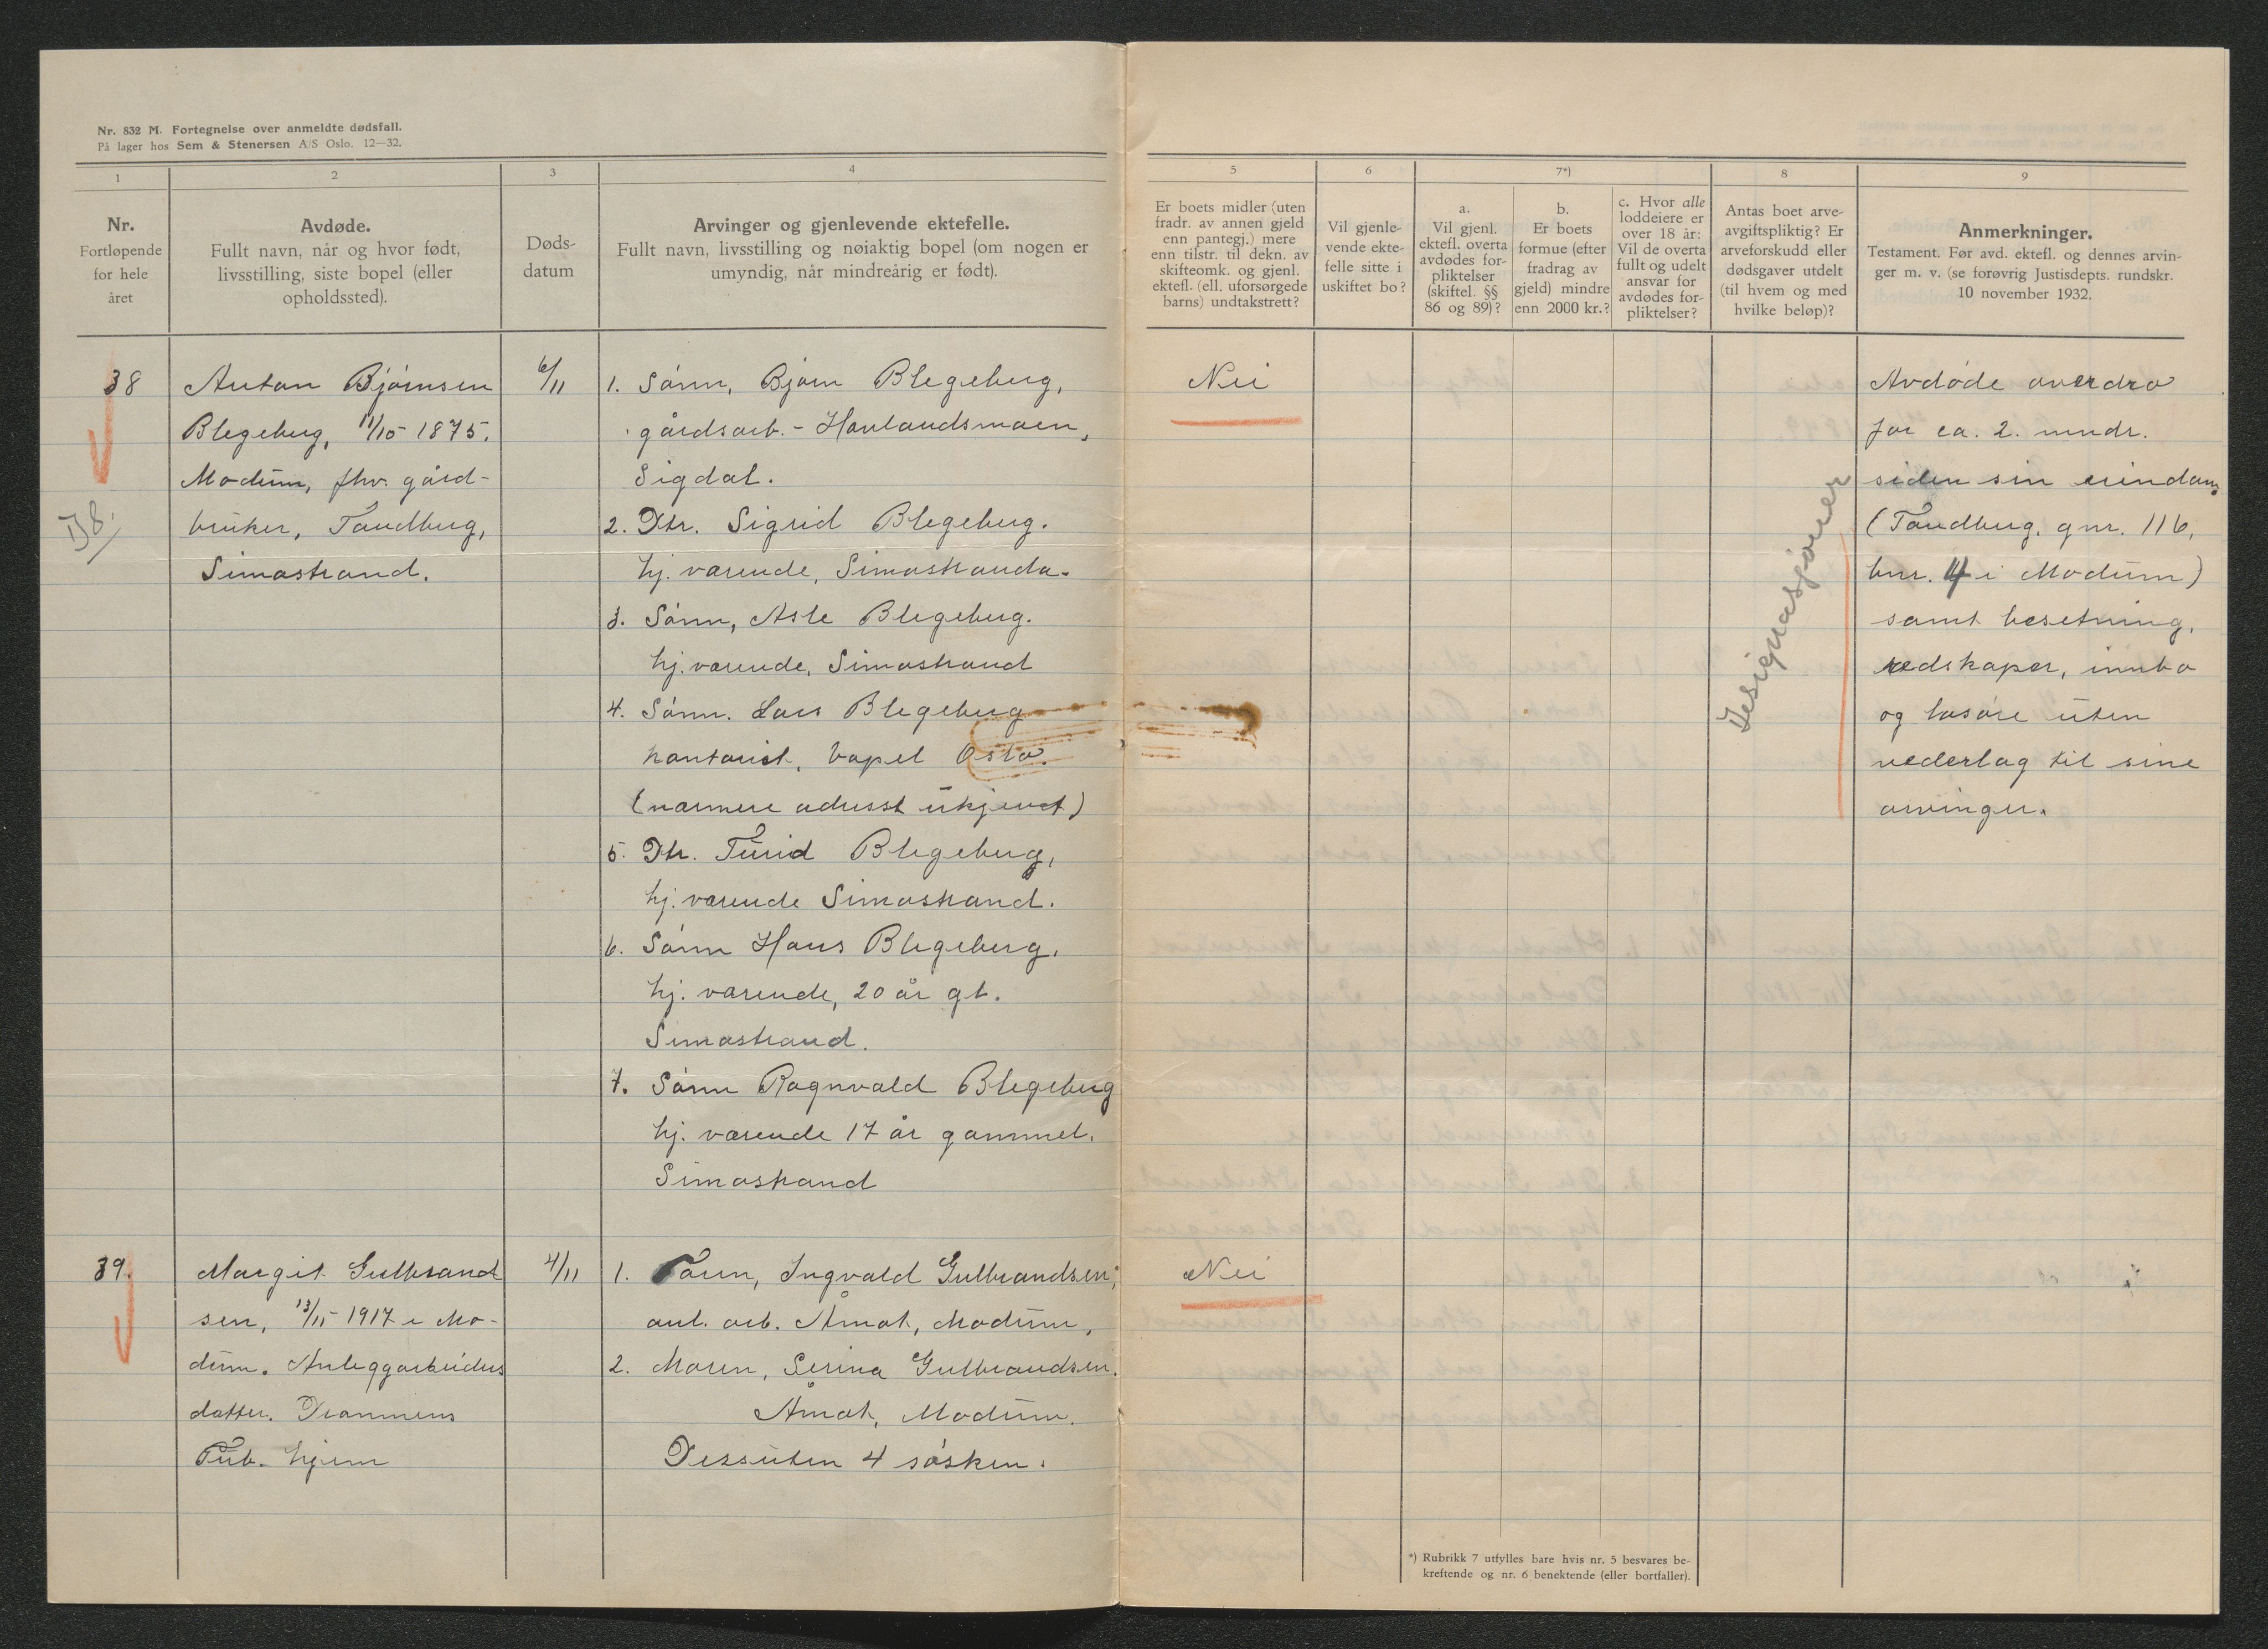 Nr. 832 M. Fortegnelse over anmeldte dødsfall.
På lager hos Sem & Stenersen A/S Oslo. 12—32.
1
2
3
4
Nr.
Fortløpende
for hele
året
Avdøde.
Fullt navn, når og hvor født,
livsstilling, siste bopel (eller
opholdssted).
Døds-
datum
Arvinger og gjenlevende ektefelle.
Fullt navn, livsstilling og nøiaktig bopel (om nogen er
umyndig, når mindreårig er født).
38
Anton Bjørnsen
Blegeberg, 11/10 1875.
Modum, fhv. gård-
bruker, Tandberg,
Simastrand.
6/11
1. Sønn, Bjørn Blegeberg,
gårdsarb. - Hovlandsmoen,
Sigdal.
2. Dtr. Sigrid Blegeberg.
hj. værende, Simastranda.
3. Sønn, Asle Blegeberg.
hj. værende, Simostrand
4. Sønn. Lars Blegeberg
kontorist, bopel Oslo.
(nærmere adresse ukjendt)
5. Dtr. Turid Blegeberg,
hj. værende Simostrand.
6. Sønn Hans Blegeberg,
hj. værende, 20 år gl.
Simostrand.
7. Sønn Ragnvald Blegeberg
hj. værende 17 år gammel.
Simostrand
39.
Margit Gulbrand
sen, 13/11 1917 i Mo-
dum. Anleggarbeiders
datter. Drammens
Tub. hjem
4/11
1. Faren, Ingvald Gulbrandsen,
anl. arb. Åmot, Modum,
2. Moren, Serina Gulbrandsen.
Åmot, Modum.
Dessuten 4 søsken.
5
6
7*)
8
9
Er boets midler (uten
fradr. av annen gjeld
enn pantegj.) mere
enn tilstr. til dekn. av
skifteomk. og gjenl.
ektefl. (ell. uforsørgede
barns) undtakstrett?
Vil gjenle-
vende ekte-
felle sitte i
uskiftet bo?
a.
Vil gjenl.
ektefl. overta
avdødes for-
pliktelser
(skiftel. §§
86 og 89)?
b.
Er boets
formue (efter
fradrag av
gjeld) mindre
enn 2000 kr.?
c. Hvor alle
loddeiere er
over 18 år:
Vil de overta
fullt og udelt
ansvar for
avdødes for-
pliktelser?
Antas boet arve-
avgiftspliktig? Er
arveforskudd eller
dødsgaver utdelt
(til hvem og med
hvilke beløp)?
Anmerkninger.
Testament. Før avd. ektefl. og dennes arvin-
ger m. v. (se forøvrig Justisdepts. rundskr.
10 november 1932.
Nei
Designasjoner
Avdøde overdro
for ca. 2. mndr.
siden sin eiendom
(Tandberg, gnr. 116,
bnr. 4 i Modum)
samt besetning,
redskaper, innbo
og løsøre uten
vederlag til sine
arvinger.
Nei
*) Rubrikk 7 utfylles bare hvis nr. 5 besvares be-
kreftende og nr. 6 benektende (eller bortfaller).